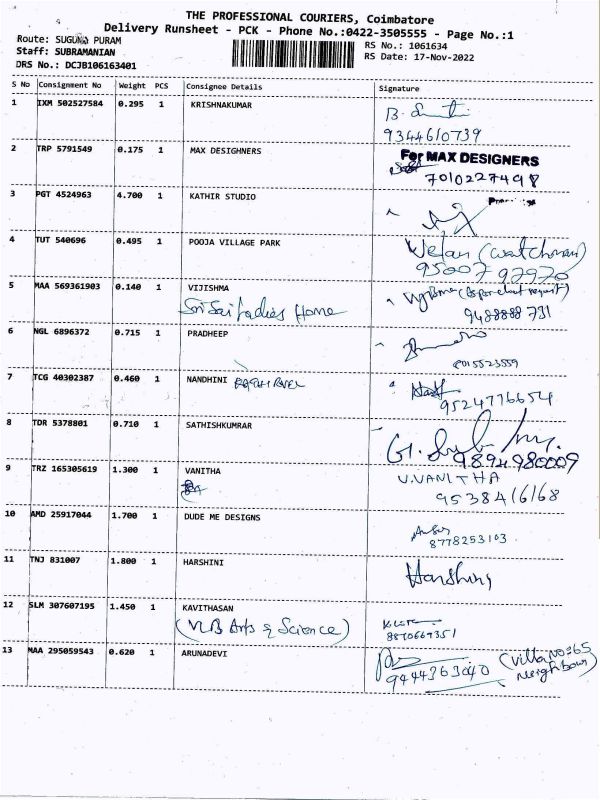 THE PROFESSIONAL COURIERS, Coimbatore
Delivery Runsheet - PCK - Phone No.:0422-3505555 - Page No.:1
Route: SUGUNA PURAM
RS No.: 1061634
Staff: SUBRAMANIAN
RS Date: 17-Nov-2022
DRS No.: DCJB106163401
S No Consignment No Weight PCS Consignee Details Signature
1 IXM 502527584 0.295 1 KRISHNAKUMAR
9344610739
2 TRP 5791549 0.175 1 MAX DESIGHNERS For MAX DESIGNERS
7010227498
3 PGT 4524963 4.700 1 KATHIR STUDIO
4 TUT 540696 0.495 1 POOJA VILLAGE PARK Velan (watchman)
95007 92970
5 MAA 569361903 0.140 1 VIJISHMA
Sri Sai Ladies Home
9488888 731
6 NGL 6896372 0.715 1 PRADHEEP
8015523559
7 TCG 40302387 0.460 1 NANDHINI
9524776654
8 TDR 5378801 0.710 1 SATHISHKUMRAR
9894980009
9 TRZ 165305619 1.300 1 VANITHA V.VANITHA
9538416168
10 AMD 25917044 1.700 1 DUDE ME DESIGNS
8778253103
11 TNJ 831007 1.800 1 HARSHINI Harshini
12 SLM 307607195 1.450 1 KAVITHASAN
(VLB Arts & Science)
8870669351
13 MAA 295059543 0.620 1 ARUNADEVI
9444363040 (Villa No:65
Neighbour)